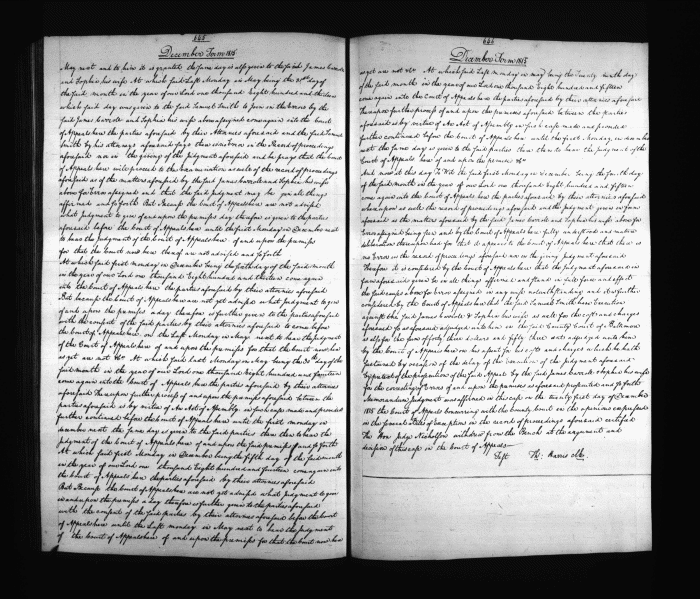 445
December Term 1815
May next and to him it is granted the same day is also given to the said James
and Sophia his wife At which said Last Monday in May being the 31st day of
the said month in the year of our Lord one thousand Eight hundred and thirteen
which said day was given to the said Samuel Smith to join in the Errors by the
said James and Sophia his wife above assigned come again into the Court
of Appeals here the parties aforesaid by their Attornies aforesaid and the said Samuel
Smith by his attorney aforesaid says there is no Error in the Record of proceedings
aforesaid nor in the giving of the judgment aforesaid and he prays that the Court
of Appeals here will proceed to the Examination as well of the record of proceedings
aforesaid as of the matters aforesaid by the said James and Sophia his wife
above for Error assigned and that the said judgment may be in all things
affirmed and so forth But Because the Court of Appeals here are not advised
what judgment to give of and upon the premises day therefore is given to the parties
aforesaid before the Court of Appeals here until the first Monday in December next
to hear the judgment of the Court of Appeals here of and upon the premises
for that the Court now here thereof are not advised and so forth
At which said first Monday in December being the day of the said month
in the year of our Lord one thousand Eight hundred and thirteen come again
into the Court of Appeals here the parties aforesaid by their attornies aforesaid
But because the Court of Appeals here are not yet advised what judgment to give
of and upon the premises a day therefore is further given to the parties aforesaid
with the consent of the said parties by their attornies aforesaid to come before
the Court of Appeals here on the Last Monday in May next to hear the judgment
of the Court of Appeals here of and upon the premises for that the Court now here
as yet are not &c At which said last Monday in May being the 30th day of the
said month in the year of our Lord one thousand Eight hundred and fourteen
come again into the Court of Appeals here the parties aforesaid by their attornies
aforesaid Thereupon further process of and upon the premises aforesaid between the
parties aforesaid is by virtue of an Act of Assembly in such case made and provided
further continued before the Court of Appeals here until the first Monday in
December next the same day is given to the said parties then there to hear the
judgment of the Court of Appeals here of and upon the said premises and so forth
At which said first Monday in December being the fifth day of the said month
in the year of our Lord one thousand Eight hundred and fourteen come again into
the Court of Appeals here the parties aforesaid by their attornies aforesaid
But Because the Court of Appeals here are not yet advised what judgment to give
in and upon the premises a day therefore is further given to the parties aforesaid
with the consent of the said parties by their attornies aforesaid before the Court
of Appeals here until the Last Monday in May next to hear the judgment
of the Court of Appeals here of and upon the premises for that the Court now here
446
December Term 1815
as yet are not &c At which said Last Monday in May being the Twenty ninth day
of the said month in the year of our Lord one thousand Eight hundred and fifteen
come again into the Court of Appeals here the parties aforesaid by their attornies aforesaid
Thereupon further process of and upon the premises aforesaid between the parties
aforesaid is by virtue of an Act of Assembly in such case made and provided
further continued before the Court of Appeals here until the first Monday in December
next the same day is given to the said parties then there to hear the judgment of the
Court of Appeals here of and upon the premises &c
And now at this day To Wit the said first Monday in December being the fourth day
of the said month in the year of our Lord one thousand Eight hundred and fifteen
come again into the Court of Appeals here the parties aforesaid by their attornies aforesaid
whereupon as well the record of proceedings aforesaid and the judgment given in form
aforesaid as the matters aforesaid by the said James and Sophia his wife above for
Error assigned being seen and by the Court of Appeals here fully understood and mature
deliberation thereupon had for that it appears to the Court of Appeals here that there is
no Error in the record of proceedings aforesaid nor in the giving judgment aforesaid
Therefore It is considered by the Court of Appeals here that the judgment aforesaid in
form aforesaid given be in all things affirmed and stand in full force and effect
the said causes above for Error assigned in any wise notwithstanding and it is further
considered by the Court of Appeals here that the said Samuel Smith have Execution
against the said James & Sophia his wife as well for the costs and charges
aforesaid in form aforesaid adjudged unto him in the said County Court of Baltimore
as also for the sum of forty three dollars and fifty three cents adjudged unto him
by the Court of Appeals here on his assent for his costs and charges which he hath
sustained by occasion of the delay of the Execution of the judgment aforesaid
by pretext of the prosecution of the said Appeal by the said James & Sophia his wife
for the correcting of Errors of and upon the premises in form aforesaid prosecuted and so forth
Memorandum judgment was affirmed in this case on the twenty first day of December
1815 the Court of Appeals concurring with the County Court in the opinions expressed
in the several Bills of Exceptions in the record of proceedings aforesaid certified
The Hon. Judge Nicholson withdrew from the Bench at the argument and
decision of this case in the Court of Appeals
Test Th: Harris Clk.